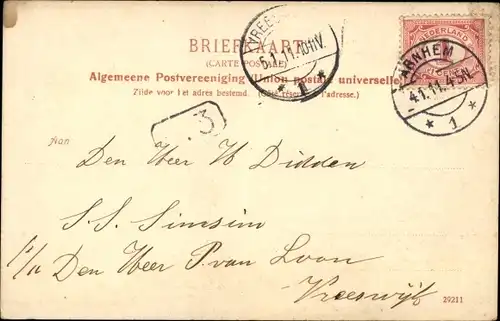 BRIEFKAART
(CARTE POSTALE)
Algemeene Postvereeniging (Union postale universelle)
Zijde voor het adres bestemd. (Côté réservé à l'adresse.)
NEDERLAND
ARNHEM
4.1.11. 4-5N.
1
VREES
5.1.11. 10-11V.
1
3
Aan
Den Heer W Didden
S.S. Simsim
p/a Den Heer P. van Loon
Vreeswijk
29211